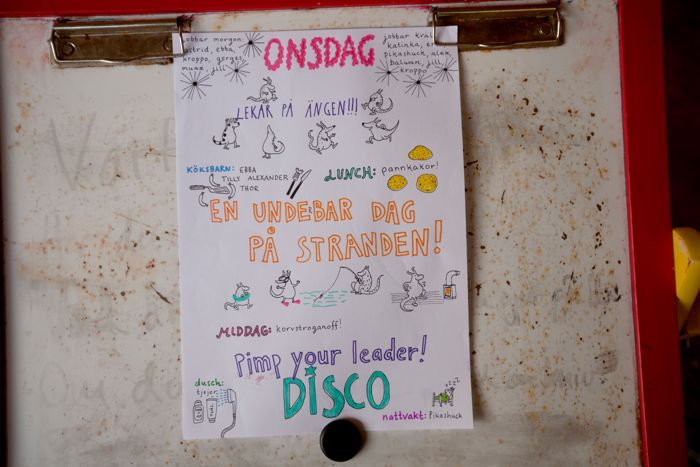 jobbar morgon:
astrid, ebba,
kroppo, gerges,
mune, jill
ONSDAG
jobbar kväl
katinka, er
pikashuck, alex,
baluun, jill,
kroppo
LEKAR PÅ ÄNGEN!!!
KÖKSBARN: EBBA
TILLY ALEXANDER
THOR
LUNCH: pannkakor!
EN UNDEBAR DAG
PÅ STRANDEN!
MIDDAG: korvstroganoff!
Pimp your leader!
DISCO
dusch:
tjejer
zzzz
nattvakt: Pikashuck